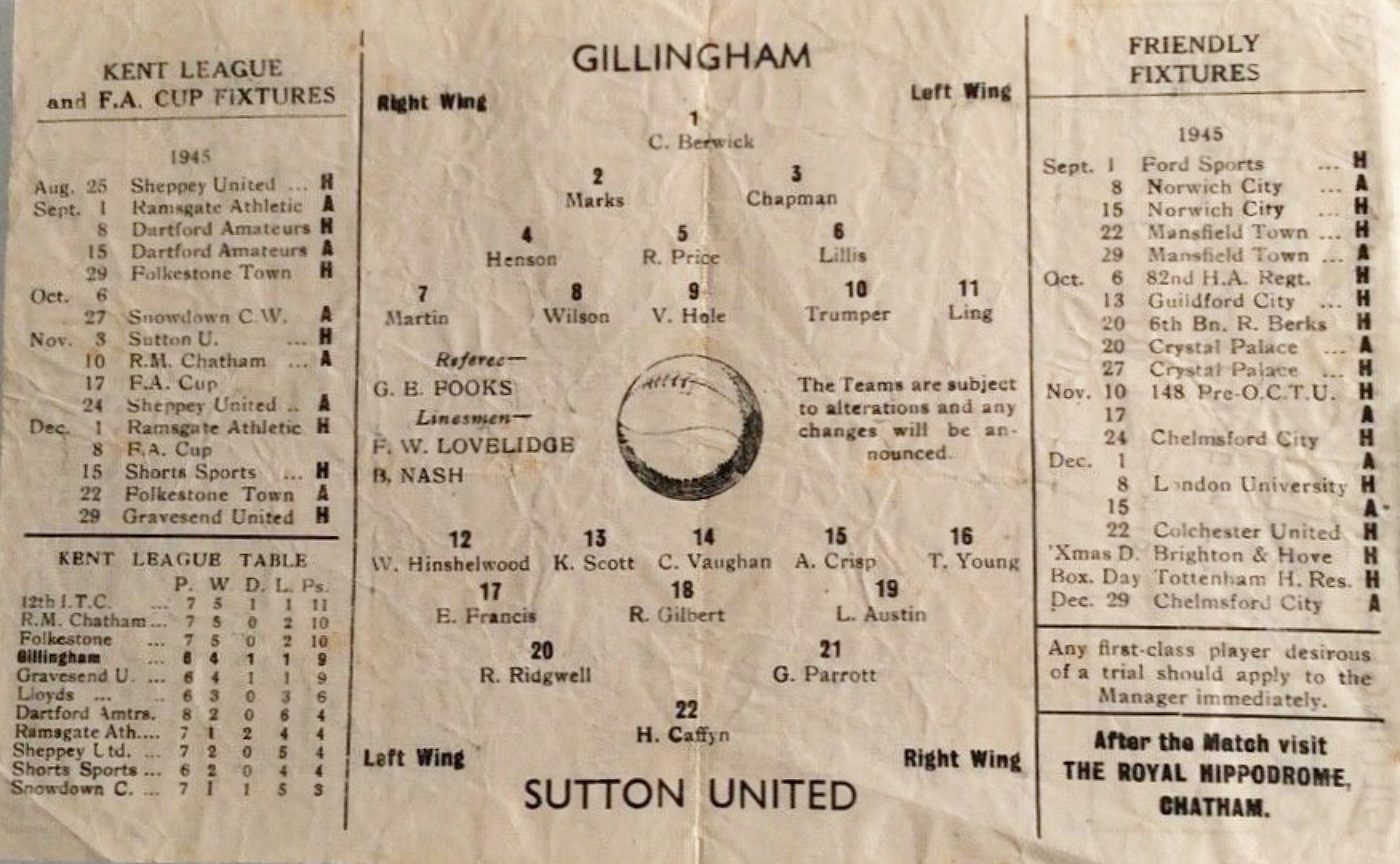 KENT LEAGUE
and F.A. CUP FIXTURES
1945
Aug. 25 Sheppey United ... H
Sept. 1 Ramsgate Athletic A
8 Dartford Amateurs H
15 Dartford Amateurs A
29 Folkestone Town H
Oct. 6
27 Snowdown C.W. A
Nov. 3 Sutton U. ... H
10 R.M. Chatham ... A
17 F.A. Cup
24 Sheppey United .. A
Dec. 1 Ramsgate Athletic H
8 F.A. Cup
15 Shorts Sports ... H
22 Folkestone Town A
29 Gravesend United H
KENT LEAGUE TABLE
P. W D. L. Ps.
12th I.T.C. ... 7 5 1 1 11
R.M. Chatham ... 7 5 0 2 10
Folkestone ... 7 5 0 2 10
Gillingham ... 6 4 1 1 9
Gravesend U. ... 6 4 1 1 9
Lloyds ... .. 6 3 0 3 6
Dartford Amtrs. 8 2 0 6 4
Ramsgate Ath.... 7 1 2 4 4
Sheppey Utd. ... 7 2 0 5 4
Shorts Sports ... 6 2 0 4 4
Snowdown C. ... 7 1 1 5 3
GILLINGHAM
Right Wing Left Wing
1
C. Berwick
2 3
Marks Chapman
4 5 6
Henson R. Price Lillis
7 8 9 10 11
Martin Wilson V. Hole Trumper Ling
Referee—
G. E. POOKS
Linesmen—
F. W. LOVELIDGE
B. NASH
The Teams are subject
to alterations and any
changes will be an-
nounced.
12 13 14 15 16
W. Hinshelwood K. Scott C. Vaughan A. Crisp T. Young
17 18 19
E. Francis R. Gilbert L. Austin
20 21
R. Ridgwell G. Parrott
22
H. Caffyn
Left Wing Right Wing
SUTTON UNITED
FRIENDLY
FIXTURES
1945
Sept. 1 Ford Sports ... H
8 Norwich City ... A
15 Norwich City ... H
22 Mansfield Town ... H
29 Mansfield Town ... A
Oct. 6 82nd H.A. Regt. H
13 Guildford City ... H
20 6th Bn. R. Berks H
20 Crystal Palace ... A
27 Crystal Palace ... H
Nov. 10 148 Pre-O.C.T.U. H
17 A
24 Chelmsford City H
Dec. 1 A
8 London University H
15 A
22 Colchester United H
'Xmas D. Brighton & Hove H
Box. Day Tottenham H. Res. H
Dec. 29 Chelmsford City A
Any first-class player desirous
of a trial should apply to the
Manager immediately.
After the Match visit
THE ROYAL HIPPODROME,
CHATHAM.